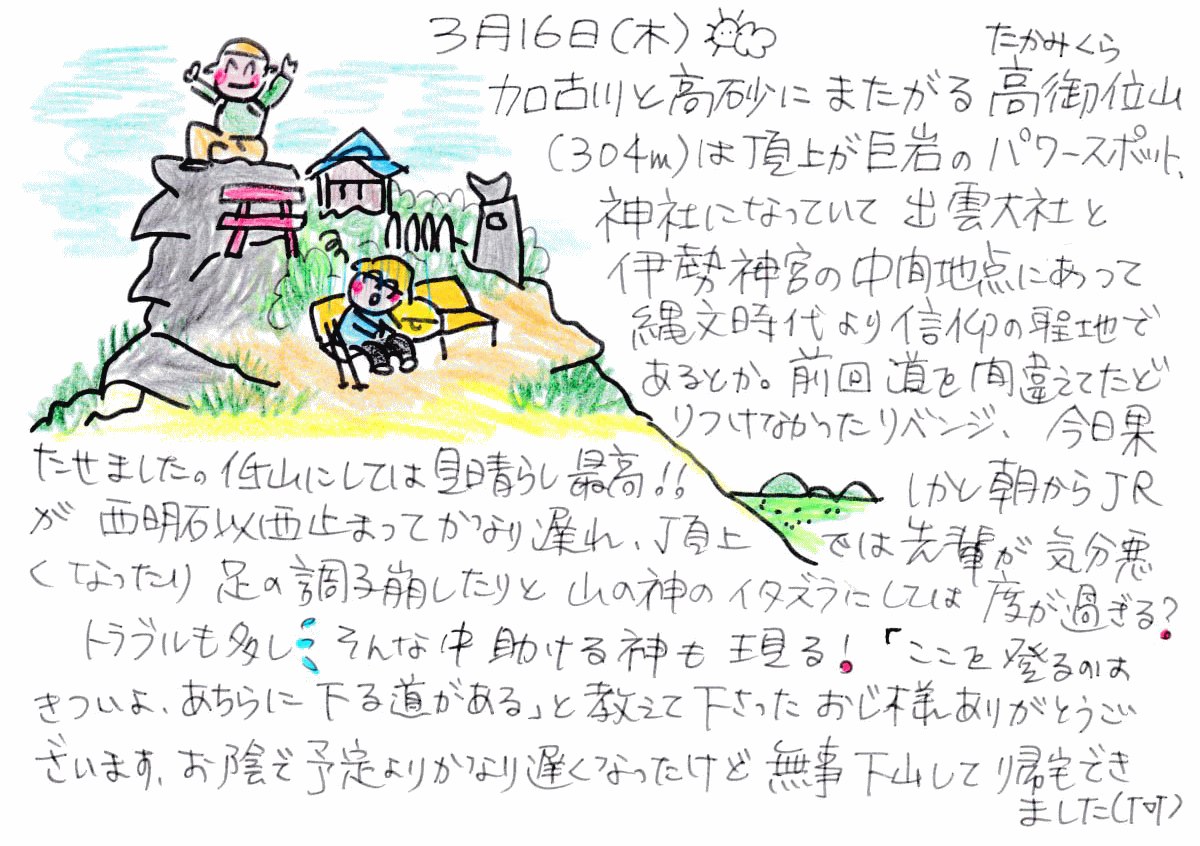 3月16日(木)
たかみくら
加古川と高砂にまたがる高御位山
(304m)は頂上が巨岩のパワースポット、
神社になっていて出雲大社と
伊勢神宮の中間地点にあって
縄文時代より信仰の聖地で
あるとか。前回道を間違えてたど
りつけなかったリベンジ、今日果
たせました。低山にしては見晴らし最高!! しかし朝からJR
が西明石以西止まってかなり遅れ、頂上では先輩が気分悪
くなったり足の調子崩したりと山の神のイタズラにしては度が過ぎる?
トラブルも多し そんな中助ける神も現る!「ここを登るのは
きついよ、あちらに下る道がある」と教えて下さったおじ様ありがとうご
ざいます、お陰で予定よりかなり遅くなったけど無事下山して帰宅でき
ました(T町)